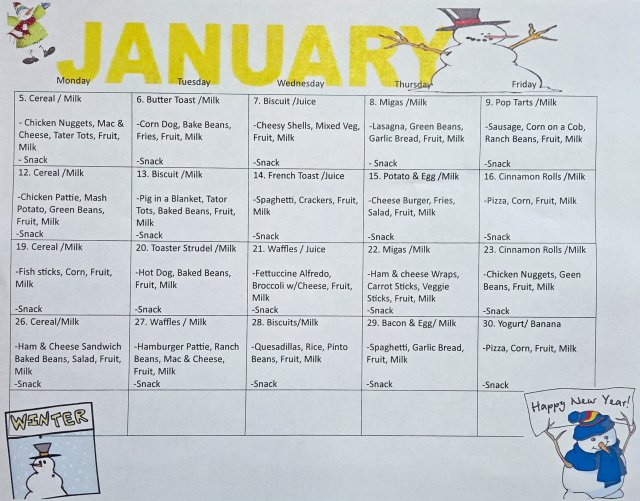 JANUARY
Monday
Tuesday
Wednesday
Thursday
Friday
5. Cereal / Milk
- Chicken Nuggets, Mac &
Cheese, Tater Tots, Fruit,
Milk
- Snack
6. Butter Toast /Milk
-Corn Dog, Bake Beans,
Fries, Fruit, Milk
-Snack
7. Biscuit /Juice
-Cheesy Shells, Mixed Veg,
Fruit, Milk
-Snack
8. Migas /Milk
-Lasagna, Green Beans,
Garlic Bread, Fruit, Milk
- Snack
9. Pop Tarts /Milk
-Sausage, Corn on a Cob,
Ranch Beans, Fruit, Milk
-Snack
12. Cereal /Milk
-Chicken Pattie, Mash
Potato, Green Beans,
Fruit, Milk
-Snack
13. Biscuit /Milk
-Pig in a Blanket, Tator
Tots, Baked Beans, Fruit,
Milk
-Snack
14. French Toast /Juice
-Spaghetti, Crackers, Fruit,
Milk
-Snack
15. Potato & Egg /Milk
-Cheese Burger, Fries,
Salad, Fruit, Milk
-Snack
16. Cinnamon Rolls /Milk
-Pizza, Corn, Fruit, Milk
-Snack
19. Cereal /Milk
-Fish sticks, Corn, Fruit,
Milk
-Snack
20. Toaster Strudel /Milk
-Hot Dog, Baked Beans,
Fruit, Milk
-Snack
21. Waffles / Juice
-Fettuccine Alfredo,
Broccoli w/Cheese, Fruit,
Milk
-Snack
22. Migas /Milk
-Ham & cheese Wraps,
Carrot Sticks, Veggie
Sticks, Fruit, Milk
-Snack
23. Cinnamon Rolls /Milk
-Chicken Nuggets, Geen
Beans, Fruit, Milk
-Snack
26. Cereal/Milk
-Ham & Cheese Sandwich
Baked Beans, Salad, Fruit,
Milk
-Snack
27. Waffles / Milk
-Hamburger Pattie, Ranch
Beans, Mac & Cheese,
Fruit, Milk
-Snack
28. Biscuits/Milk
-Quesadillas, Rice, Pinto
Beans, Fruit, Milk
-Snack
29. Bacon & Egg/ Milk
-Spaghetti, Garlic Bread,
Fruit, Milk
-Snack
30. Yogurt/ Banana
-Pizza, Corn, Fruit, Milk
-Snack
WINTER
Happy New Year!